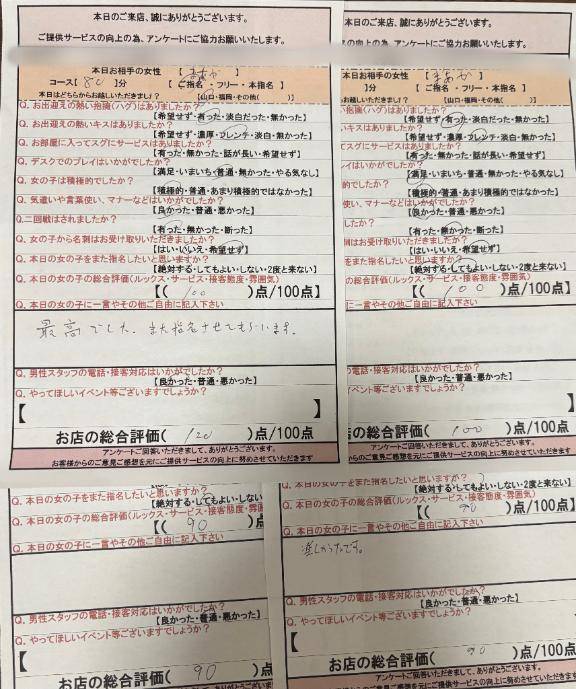 本日のご来店、誠にありがとうございます。
ご提供サービスの向上の為、アンケートにご協力お願いいたします。
本日お相手の女性 【
コース【 80 】分 【 ご指名 ・フリー・本指名 】
本日はどちらからお越しいただきましたか? 【山口・福岡・その他( )】
Q. お出迎えの熱い抱擁(ハグ)はありましたか?
【希望せず・有った・淡白だった・無かった】
Q. お出迎えの熱いキスはありましたか?
【希望せず・濃厚・フレンチ・淡白・無かった】
Q. お部屋に入ってスグにサービスはありましたか?
【有った・無かった・話が長い・希望せず】
Q. デスクでのプレイはいかがでしたか?
【満足・いまいち・普通・無かった・やる気なし】
Q. 女の子は積極的でしたか?
【積極的・普通・あまり積極的ではなかった】
Q. 気遣いや言葉使い、マナーなどはいかがでしたか?
【良かった・普通・悪かった】
Q.二回戦はされましたか?
【有った・無かった・断った】
Q. 女の子から名刺はお受け取りいただきましたか?
【はい・いいえ・希望せず】
Q. 本日の女の子をまた指名したいと思いますか?
【絶対する・してもよい・しない・2度と来ない】
Q. 本日の女の子の総合評価(ルックス・サービス・接客態度・雰囲気)
【( 100 )点/100点】
Q. 本日の女の子に一言やその他ご自由に記入下さい
最高でした。また指名させてもらいます。
Q. 男性スタッフの電話・接客対応はいかがでしたか?
【良かった・普通・悪かった】
Q. やってほしいイベント等ございますでしょうか?
【 】
お店の総合評価( 120 )点/100点
アンケートご回答いただきまして、ありがとうございます。
お客様からのご意見ご感想を元にご提供サービスの向上に努めさせていただきます
本日のご来店、誠にありがとうございます。
ご提供サービスの向上の為、アンケートにご協力お願いいたします。
本日お相手の女性 【
【 ご指名 ・フリー・本指名 】
お越しいただきましたか? 【山口・福岡・その他( )】
抱擁(ハグ)はありましたか?
【希望せず・有った・淡白だった・無かった】
いキスはありましたか?
【希望せず・濃厚・フレンチ・淡白・無かった】
てスグにサービスはありましたか?
【有った・無かった・話が長い・希望せず】
レイはいかがでしたか?
【満足・いまいち・普通・無かった・やる気なし】
的でしたか?
【積極的・普通・あまり積極的ではなかった】
使い、マナーなどはいかがでしたか?
【良かった・普通・悪かった】
したか?
【有った・無かった・断った】
刺はお受け取りいただきましたか?
【はい・いいえ・希望せず】
をまた指名したいと思いますか?
【絶対する・してもよい・しない・2度と来ない】
の総合評価(ルックス・サービス・接客態度・雰囲気)
【( 100 )点/100点】
に一言やその他ご自由に記入下さい
の電話・接客対応はいかがでしたか?
【良かった・普通・悪かった】
イベント等ございますでしょうか?
店の総合評価( 100 )点/100点
アンケートご回答いただきまして、ありがとうございます。
のご意見ご感想を元にご提供サービスの向上に努めさせていただきます
Q. 本日の女の子をまた指名したいと思いますか?
【絶対する・してもよい・しない
Q. 本日の女の子の総合評価(ルックス・サービス・接客態度・雰囲
【( 90 )点
Q. 本日の女の子に一言やその他ご自由に記入下さい
Q. 男性スタッフの電話・接客対応はいかがでしたか?
【良かった・普通・悪かった】
Q. やってほしいイベント等ございますでしょうか?
【
お店の総合評価( 90 )点
Q. 本日の女の子をまた指名したいと思いますか?
【絶対する・してもよい・しない・2度と来ない】
Q. 本日の女の子の総合評価(ルックス・サービス・接客態度・雰囲気)
【( 90 )点/100点】
Q. 本日の女の子に一言やその他ご自由に記入下さい
楽しかったです。
Q. 男性スタッフの電話・接客対応はいかがでしたか?
【良かった・普通・悪かった】
Q. やってほしいイベント等ございますでしょうか?
【
お店の総合評価( 90 )点/100点
アンケートご回答いただきまして、ありがとうございます。